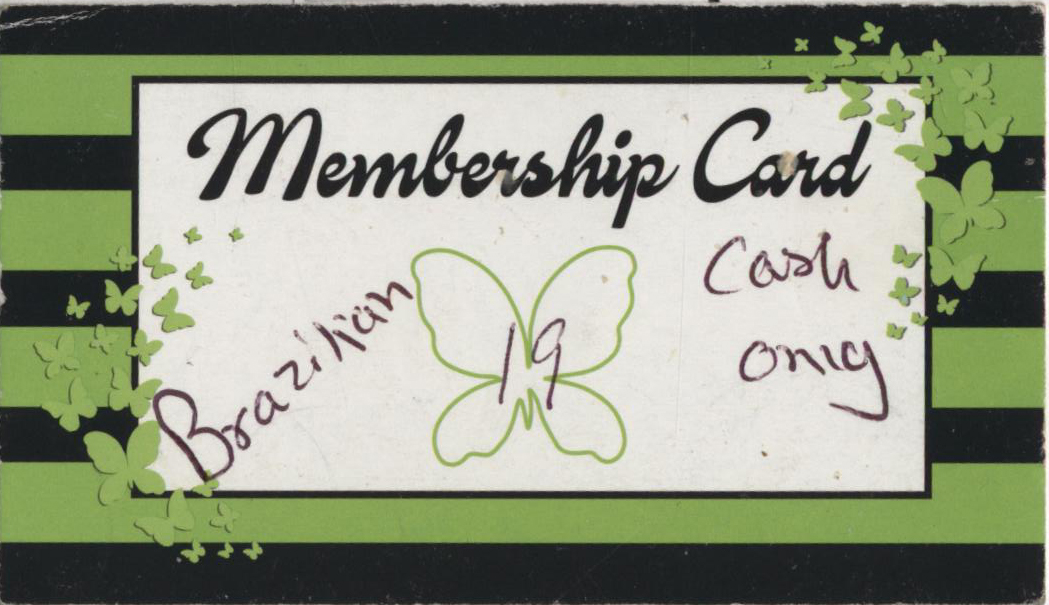 Membership Card
Brazilian
19
Cash
only